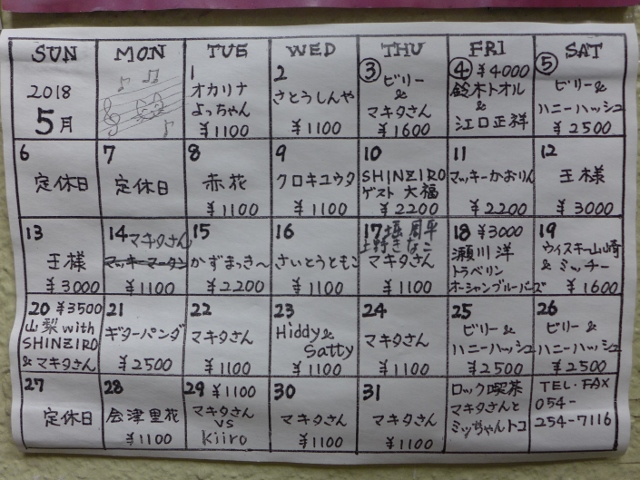 SUN MON TUE WED THU FRI SAT
2018
5月
1
オカリナ
よっちゃん
¥1100
2
さとうしんや
¥1100
③
ビリー
&
マキタさん
¥1600
④ ¥4000
鈴木トオル
&
江口正祥
⑤
ビリー&
ハニーハッシュ
¥2500
6
定休日
7
定休日
8
赤花
¥1100
9
クロキユウタ
¥1100
10
SHINZIRO
ゲスト 大福
¥2200
11
マッキーかおりん
¥2200
12
王様
¥3000
13
王様
¥3000
14 マキタさん
マッキーマータン
¥1100
15
かずまっき〜
¥2,200
16
さいとうともこ
¥1100
17
上野きなこ
マキタさん
¥1100
18 ¥3000
瀬川洋
トラベリン
オーシャンブルーバーズ
19
ウイスキー山崎
&ミッチー
¥1600
20 ¥3500
山梨with
SHINZIRO
&マキタさん
21
ギターパンダ
¥2500
22
マキタさん
¥1100
23
Hiddy&
Satty
¥1100
24
マキタさん
¥1100
25
ビリー&
ハニーハッシュ
¥2500
26
ビリー&
ハニーハッシュ
¥2500
27
定休日
28
会津里花
¥1100
29 ¥1100
マキタさん
VS
kiiro
30
マキタさん
¥1100
31
マキタさん
¥1100
ロック喫茶
マキタさんと
ミッちゃんトコ
TEL・FAX
054-
254-7116